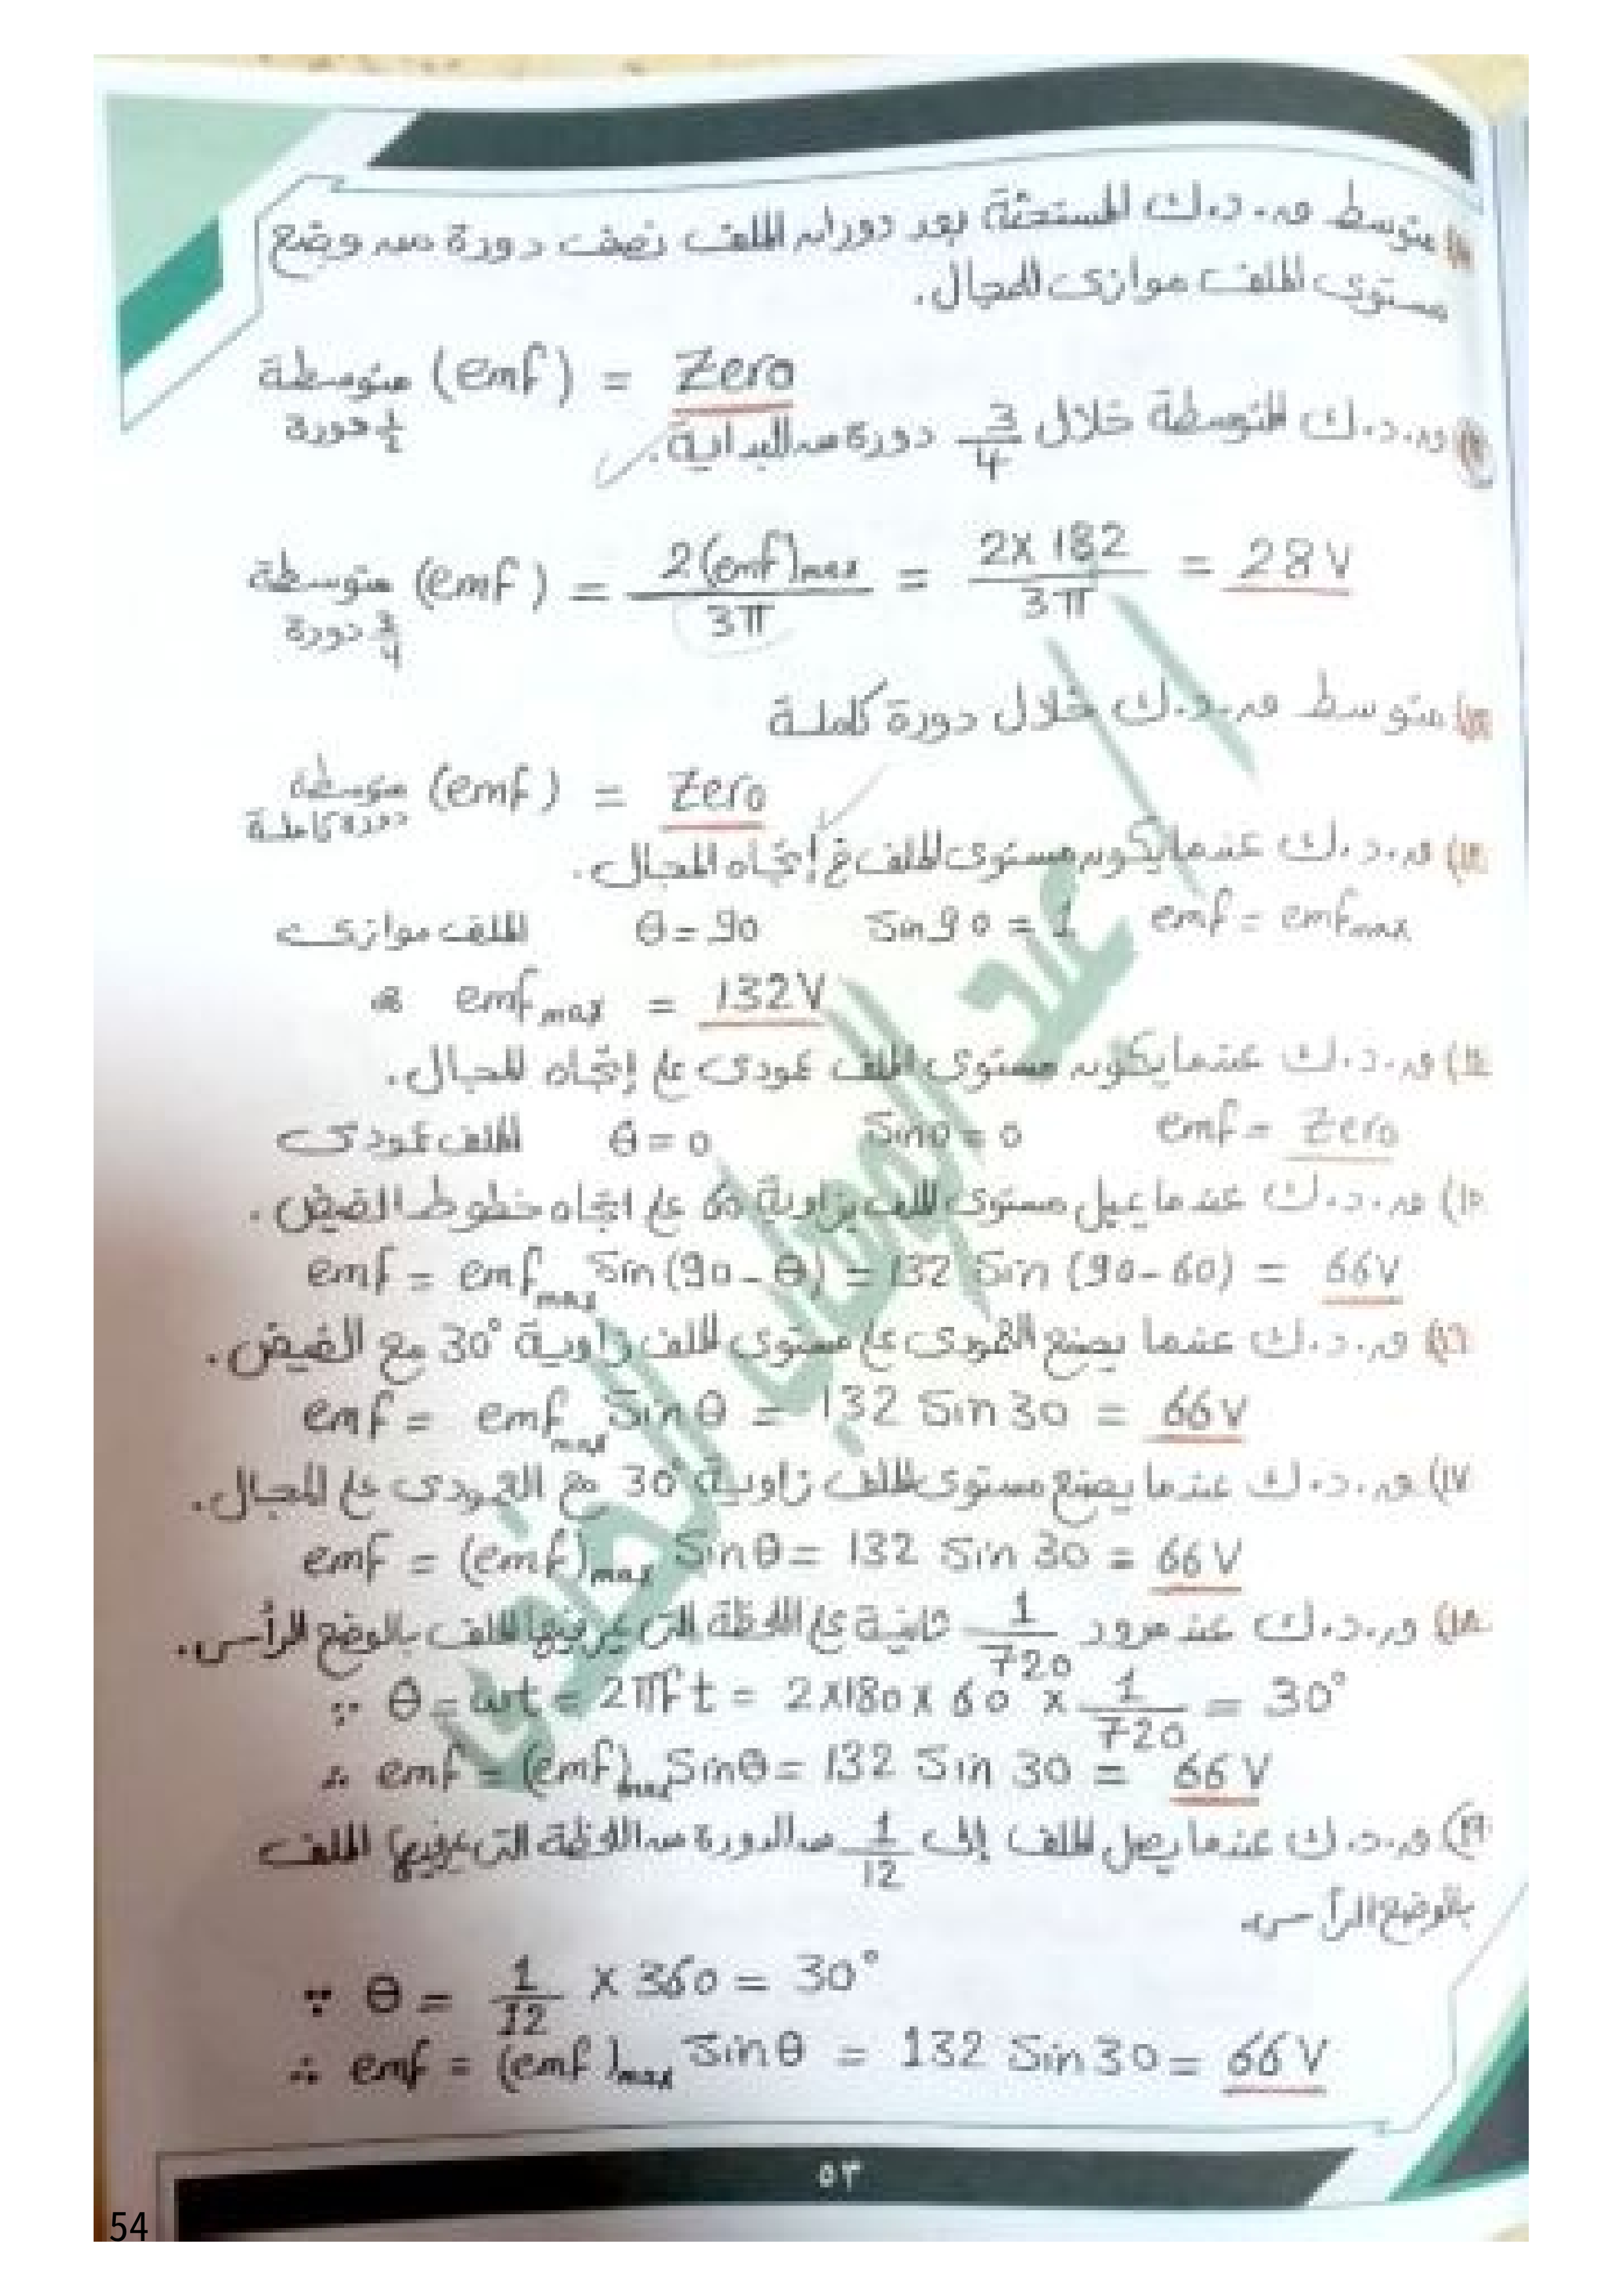 متوسط ق.د.ك المستحثة بعد دوران الملف نصف دورة من وضع
مستوى الملف موازى للمجال.
متوسطة (emf) = Zero
½ دورة
ق.د.ك المتوسطة خلال 3/4 دورة من البداية.
متوسطة (emf) = 2(emf)max / 3π = 2X182 / 3π = 28V
3/4 دورة
متوسط ق.د.ك خلال دورة كاملة
متوسطة (emf) = Zero
دورة كاملة
ق.د.ك عندما يكون مستوى الملف فى إتجاه المجال.
الملف موازى θ=90 Sin90=1 emf = emfmax
∴ emfmax = 132V
ق.د.ك عندما يكون مستوى الملف عمودى على إتجاه المجال.
الملف عمودى θ=0 Sin0=0 emf = Zero
ق.د.ك عندما يميل مستوى الملف بزاوية 60 على اتجاه خطوط الفيض.
emf = emfmax Sin(90-θ) = 132 Sin (90-60) = 66V
١٦) ق.د.ك عندما يصنع العمودى على مستوى الملف زاوية 30° مع الفيض.
emf = emfmax Sinθ = 132 Sin30 = 66V
١٧) ق.د.ك عندما يصنع مستوى الملف زاوية 30° مع العمودى على المجال.
emf = (emf)max Sinθ = 132 Sin 30 = 66V
١٨) ق.د.ك عند مرور 1/720 ثانية على اللحظة التى يمر فيها الملف بالوضع الرأسى.
∵ θ = ωt = 2πft = 2X180X60X 1/720 = 30°
∴ emf = (emf)max Sinθ = 132 Sin 30 = 66V
١٩) ق.د.ك عندما يصل الملف إلى 1/12 من الدورة من اللحظة التى يمر فيها الملف
بالوضع الرأسى
∵ θ = 1/12 X 360 = 30°
∴ emf = (emf)max Sinθ = 132 Sin30 = 66V
٥٣
54